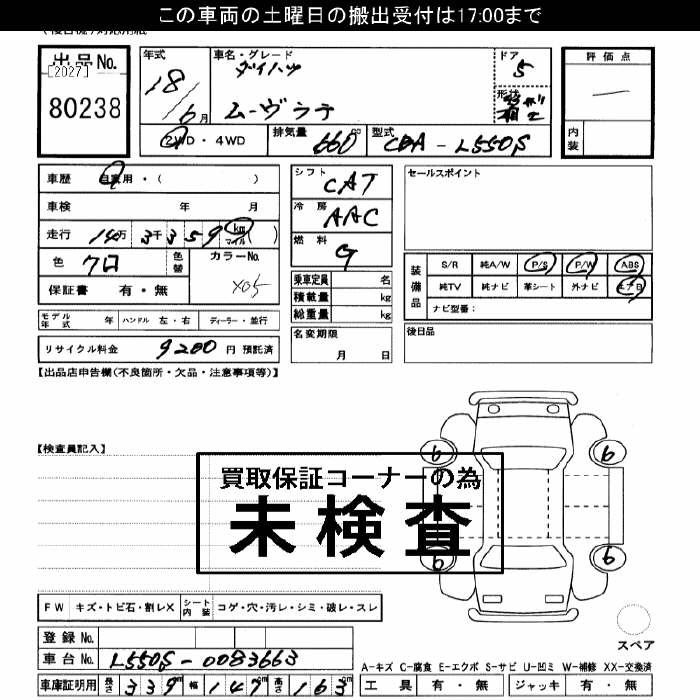 この車両の土曜日の搬出受付は17:00まで
出品No.
[2027]
80238
年式
18
6月
車名・グレード
ダイハツ
ムーヴラテ
ドア
5
形状
評価点
内装
2WD・4WD
排気量
660 cc
型式
CBA-L550S
車歴
自家用・( )
車検 年 月
走行 14万 3千 359 km マイル ( )
色 クロ
色替
カラーNo.
X05
保証書 有・無
シフト
CAT
冷房
AAC
燃料
G
乗車定員 名
積載量 kg
総重量 kg
セールスポイント
装備品
S/R 純A/W P/S P/W ABS
純TV 純ナビ 革シート 外ナビ エアB
ナビ型番:
モデル年式 年 ハンドル 左・右 ディーラー・並行
リサイクル料金 9200 円 預託済
名変期限
月 日
後日品
【出品店申告欄(不良箇所・欠品・注意事項等)】
【検査員記入】
買取保証コーナーの為
未検査
6
6
6
6
FW キズ・トビ石・割レX シート内装 コゲ・穴・汚レ・シミ・破レ・スレ
スペア
登録No.
車台No. L550S-0083663
A-キズ C-腐食 E-エクボ S-サビ U-凹ミ W-補修 XX-交換済
車庫証明用 長さ 339cm 幅 147cm 高さ 163cm
工具 有・無 ジャッキ 有・無